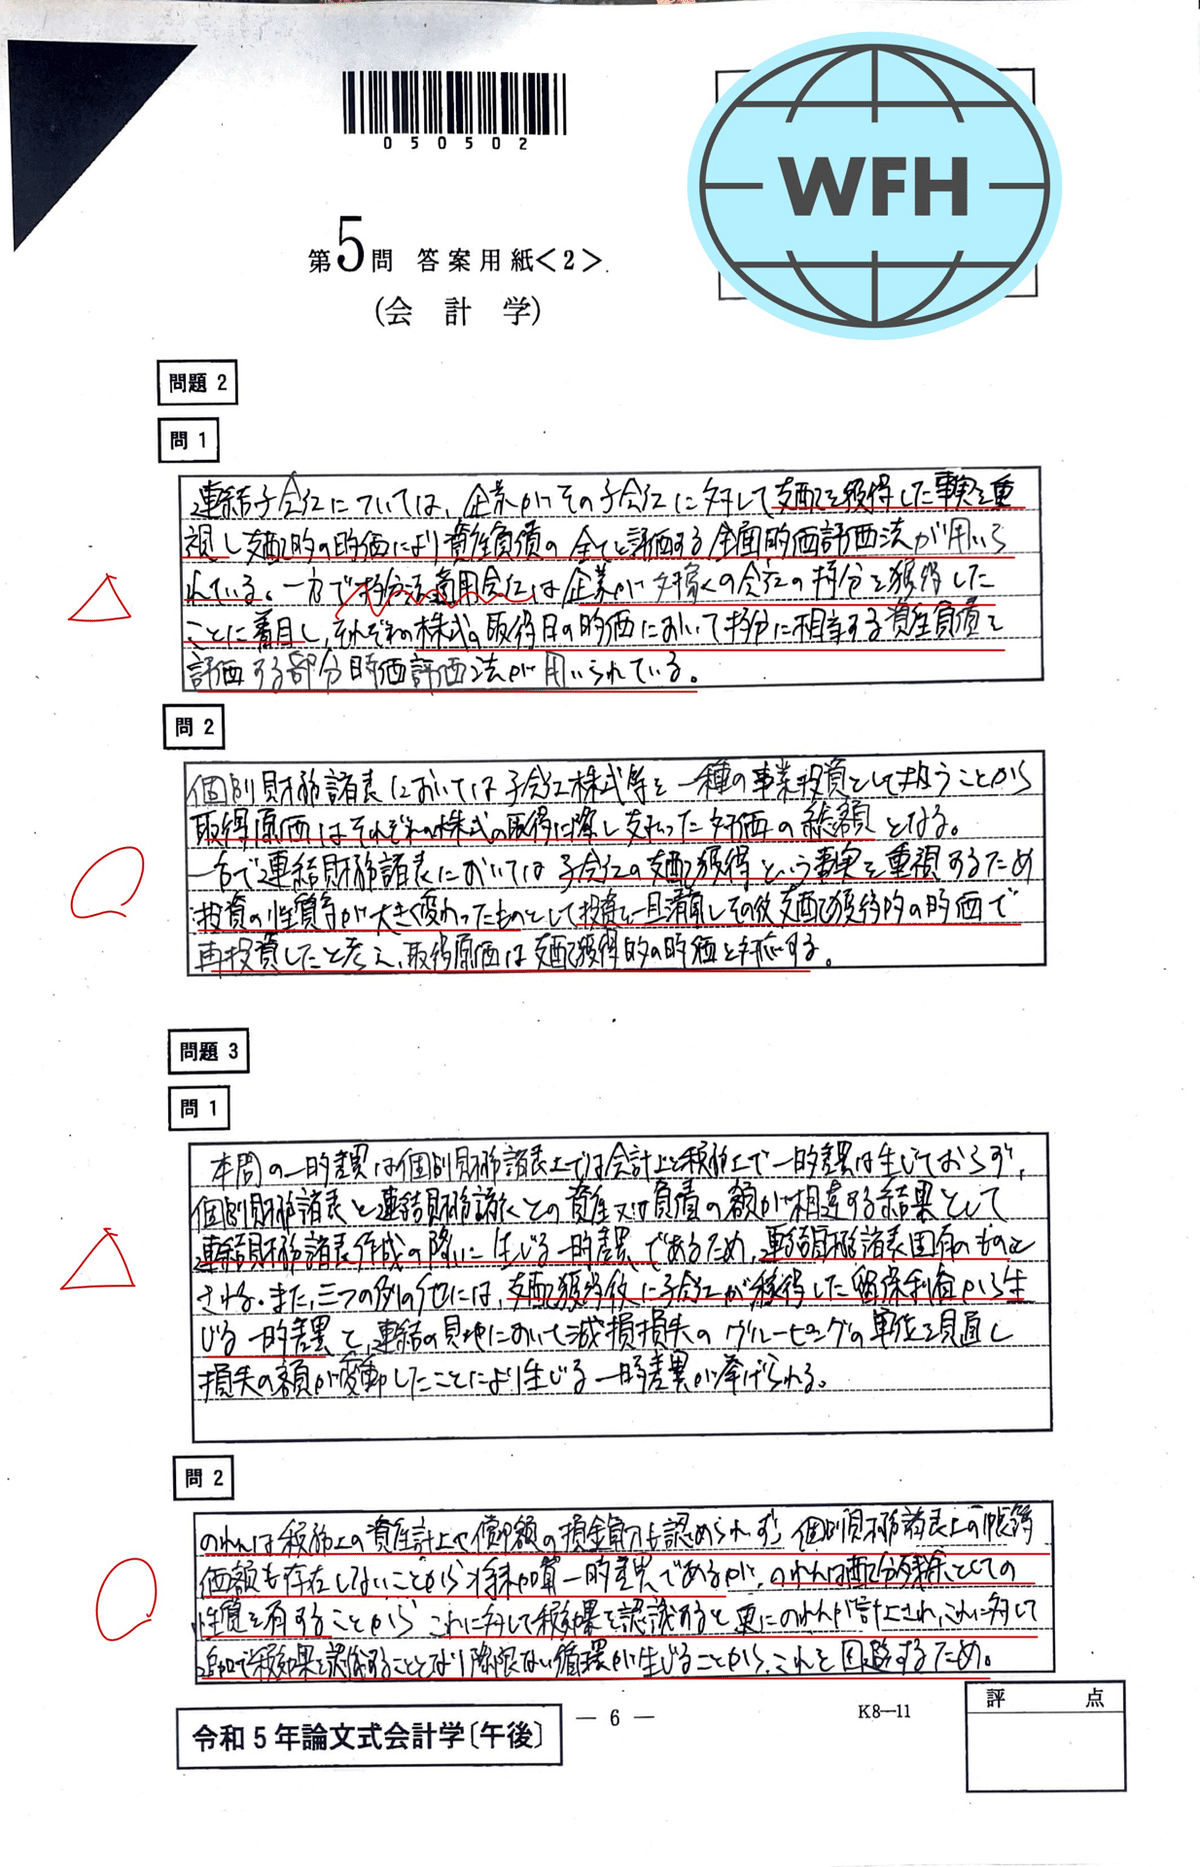 050502
WFH
第5問 答案用紙<2>
(会計学)
問題 2
問 1
連結子会社については、企業がその子会社に対して支配を獲得した事実を重
視し支配時の時価により資産負債の全てを評価する全面時価評価法が用いら
れている。一方で持分法適用会社は企業が対象の会社の持分を獲得した
ことに着目し、それぞれの株式の取得日の時価において持分に相当する資産負債を
評価する部分時価評価法が用いられている。
問 2
個別財務諸表においては子会社株式等を一種の事業投資として扱うことから
取得原価はそれぞれの株式の取得に際し支払った対価の総額となる。
一方で連結財務諸表においては子会社の支配獲得という事実を重視するため
投資の性質が大きく変わったものとして投資を一旦清算しその後支配獲得時の時価で
再投資したと考え、取得原価は支配獲得時の時価と対応する。
問題 3
問 1
本問の一時差異は個別財務諸表上では会計上と税務上で一時差異は生じておらず、
個別財務諸表と連結財務諸表との資産又は負債の額が相違する結果として
連結財務諸表作成の際に生じる一時差異であるため、連結財務諸表固有のものと
される。また、三つの例の他には、支配獲得後に子会社が獲得した留保利益から生
じる一時差異と、連結の見地において減損損失のグルーピングの単位を見直し
損失の額が変動したことにより生じる一時差異が挙げられる。
問 2
のれんは税務上の資産計上や償却額の損金算入も認められず、個別財務諸表上の帳簿
価額も存在しないことから将来加算一時差異であるが、のれんは配分残余としての
性質を有することから これに対して税効果を認識すると更にのれんが計上され、これに対して
追加で税効果を認識することとなり際限ない循環が生じることから、これを回避するため。
評 点
令和5年論文式会計学〔午後〕
— 6 —
K8—11